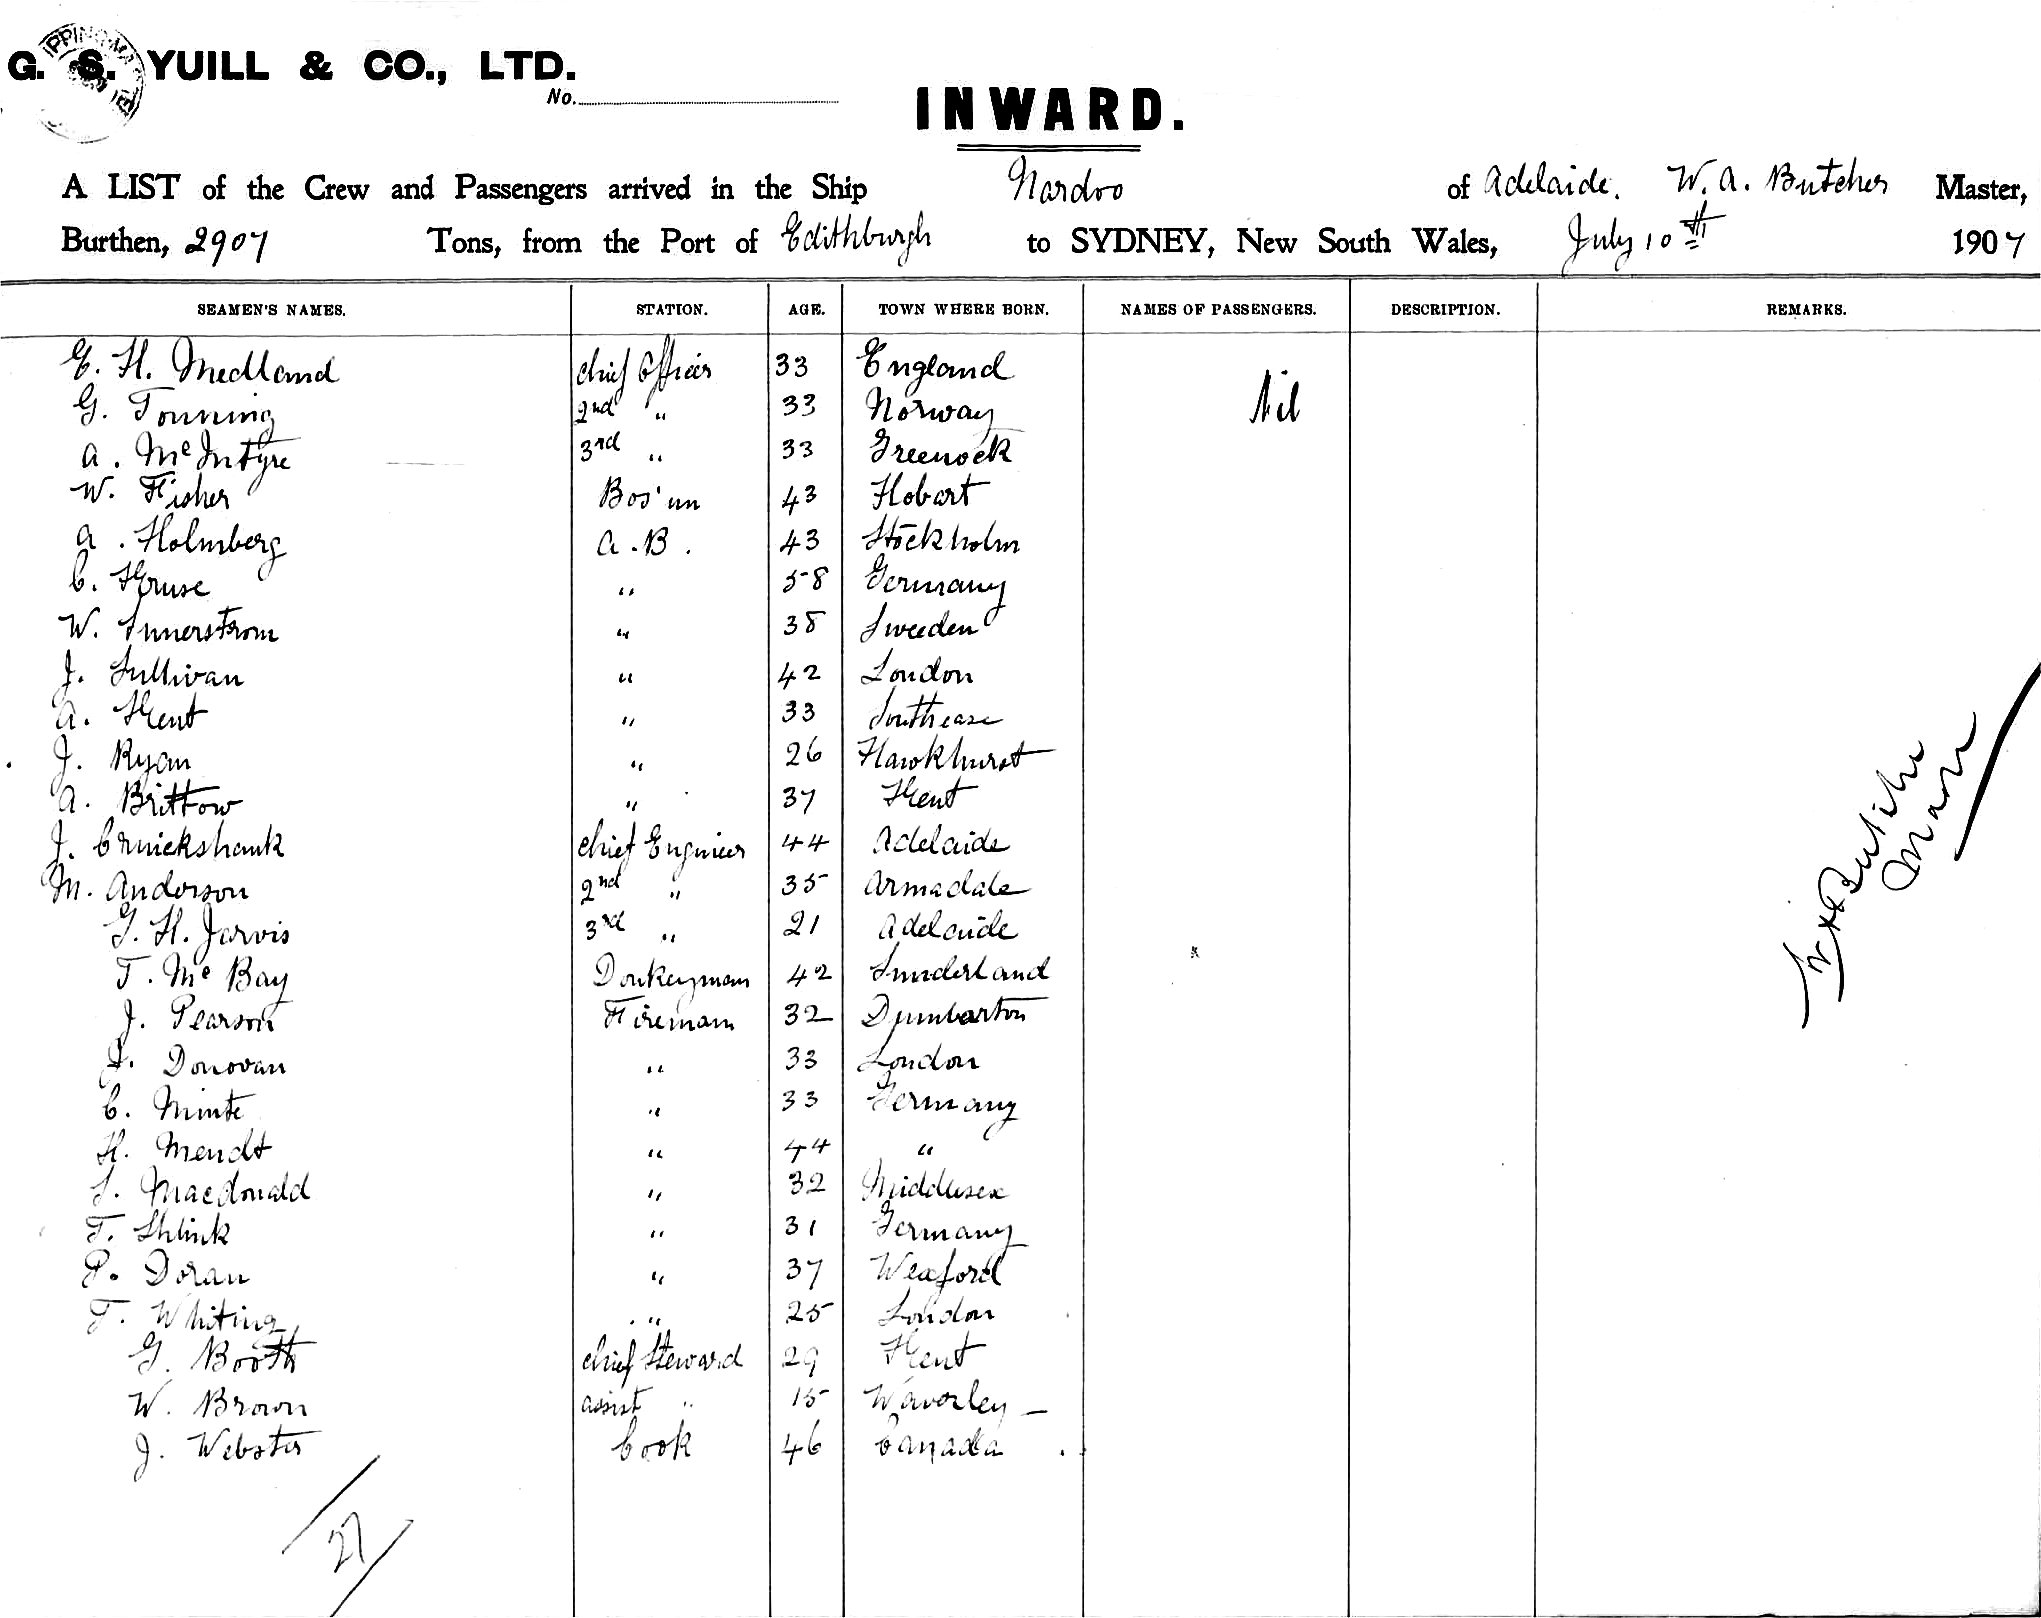 G. S. YUILL & CO., LTD.
No.
INWARD.
A LIST of the Crew and Passengers arrived in the Ship Nardoo of Adelaide. W. A. Butcher Master,
Burthen, 2907 Tons, from the Port of Edithburgh to SYDNEY, New South Wales, July 10th 1907
SEAMEN'S NAMES. STATION. AGE. TOWN WHERE BORN. NAMES OF PASSENGERS. DESCRIPTION. REMARKS.
E. H. Medland chief Officer 33 England Nil
G. Tonning 2nd " 33 Norway
A. McIntyre 3rd " 33 Greenock
W. Fisher Bos'un 43 Hobart
A. Holmberg A.B. 43 Stockholm
C. Kruse " 58 Germany
W. Innerstrom " 38 Sweeden
J. Sullivan " 42 London
A. Kent " 33 Southease
J. Ryan " 26 Hawkhurst
A. Brittow " 37 Kent
J. Cruickshank chief Engineer 44 Adelaide
M. Anderson 2nd " 35 Armadale
G. H. Jarvis 3rd " 21 Adelaide
T. McBay Donkeyman 42 Sunderland
J. Pearson Fireman 32 Dumbarton
J. Donovan " 33 London
C. Minte " 33 Germany
H. Mendt " 44 "
S. Macdonald " 32 Middlesex
T. Shlink " 31 Germany
P. Doran " 37 Wexford
T. Whiting " 25 London
G. Booth chief Steward 29 Kent
W. Brown assist " 15 Waverley —
J. Webster Cook 46 Canada
27
W A Butcher